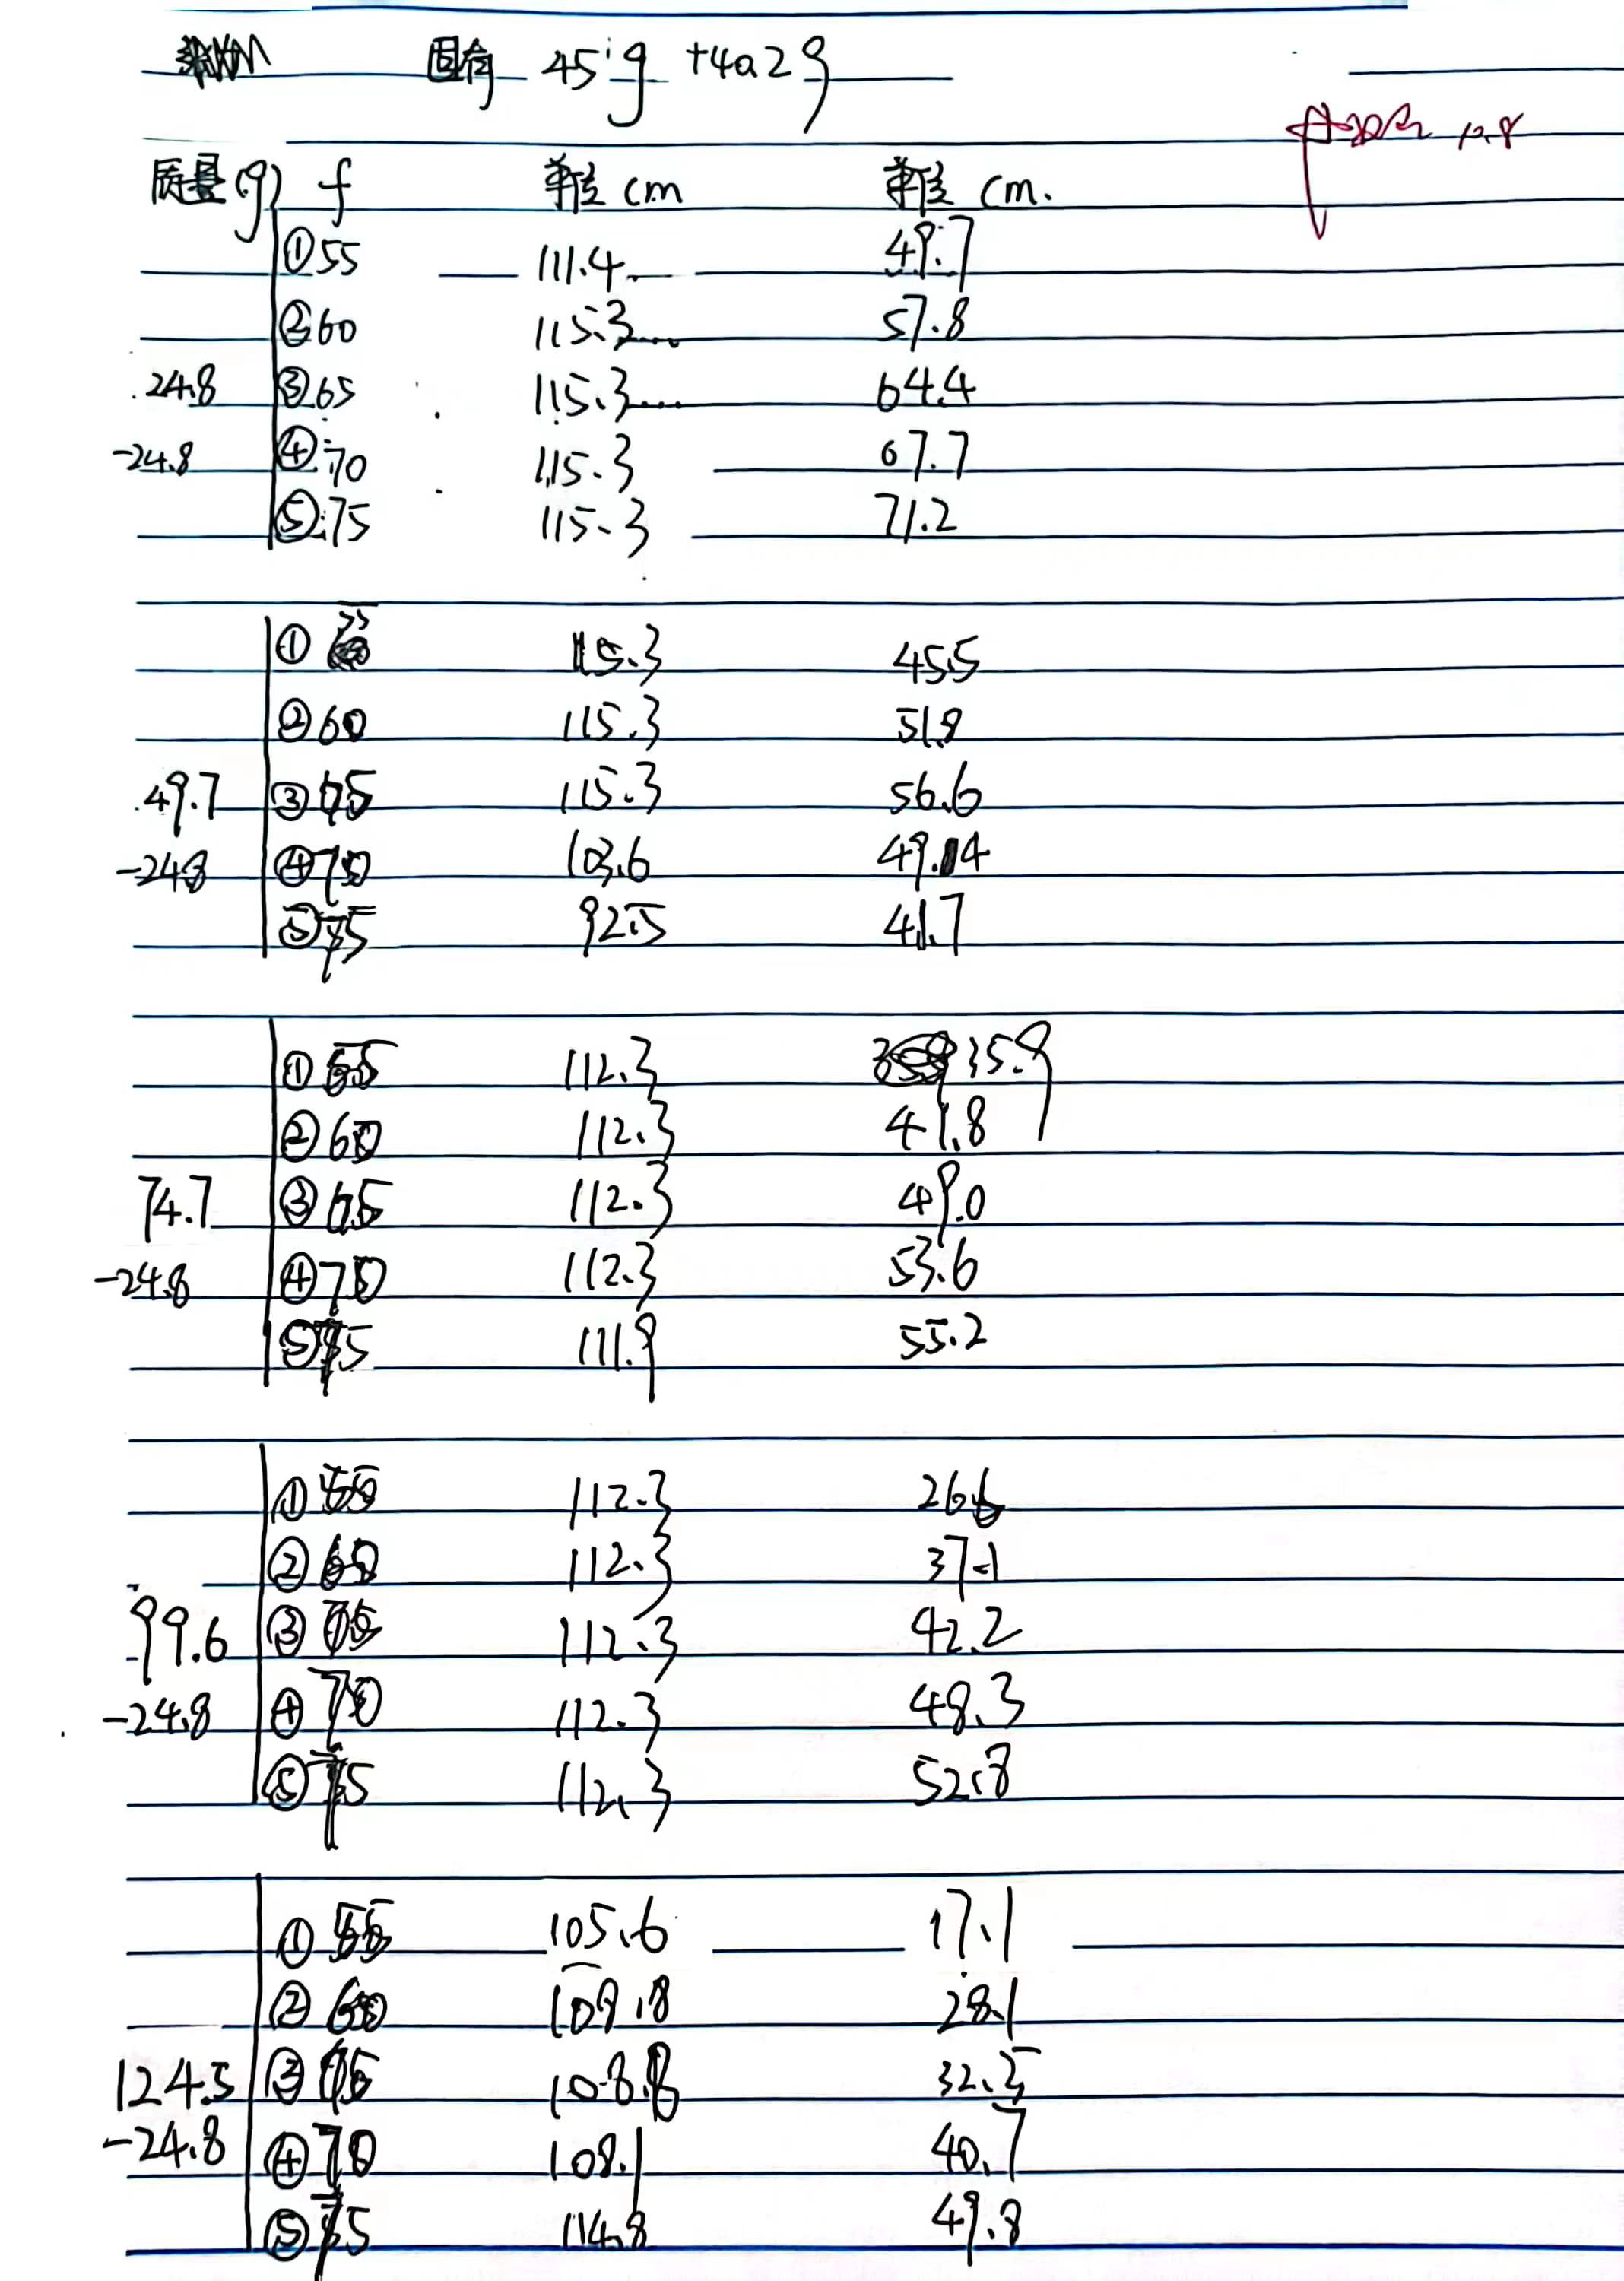 固有 45g +4a2g
12.8
质量(g) f 单位 cm 单位 cm.
①55 111.4 49.7
②60 115.3 57.8
24.8 ③65 115.3 64.4
-24.8 ④70 115.3 67.7
⑤75 115.3 71.2
① 55 115.3 45.5
②60 115.3 51.9
49.7 ③65 115.3 56.6
-24.8 ④70 103.6 49.14
⑤75 92.5 41.7
①55 112.3 35.9
②60 112.3 41.8
74.7 ③65 112.3 49.0
-24.8 ④70 112.3 53.6
⑤75 111.9 55.2
①55 112.3 26.6
②60 112.3 37.1
99.6 ③65 112.3 42.2
-24.8 ④70 112.3 48.3
⑤75 112.3 52.8
①55 105.6 17.1
②60 109.8 28.1
124.5 ③65 108.8 32.5
-24.8 ④70 108.1 40.7
⑤75 114.8 49.8